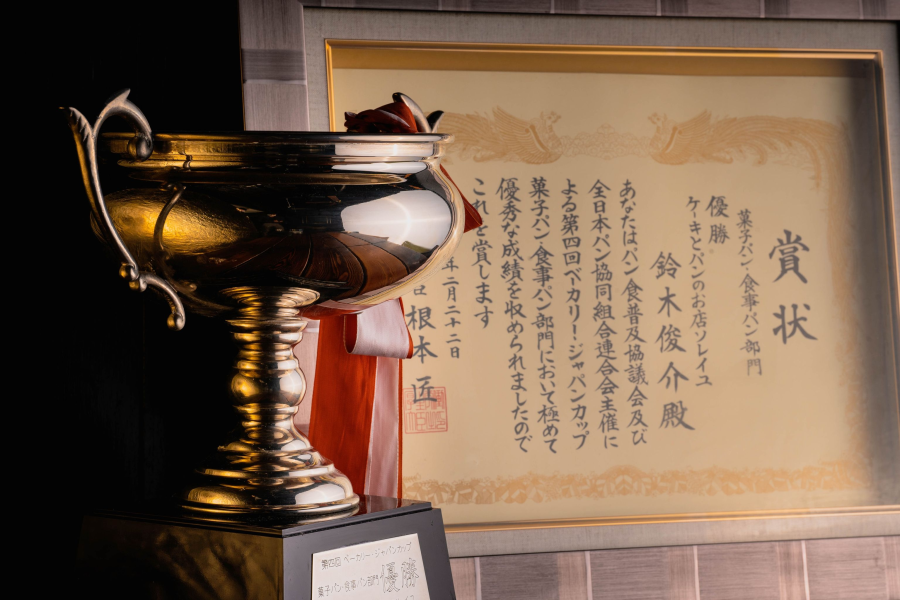 賞状
菓子パン・食事パン部門
優勝
ケーキとパンのお店ソレイユ
鈴木俊介殿
あなたはパン食普及協議会及び
全日本パン協同組合連合会主催に
よる第四回ベカリー・ジャパンカップ
菓子パン・食事パン部門において極めて
優秀な成績を収められましたので
これを賞します
年二月二十二日
根本匠
第四回 ベーカリー・ジャパンカップ
菓子パン・食事パン部門 優勝